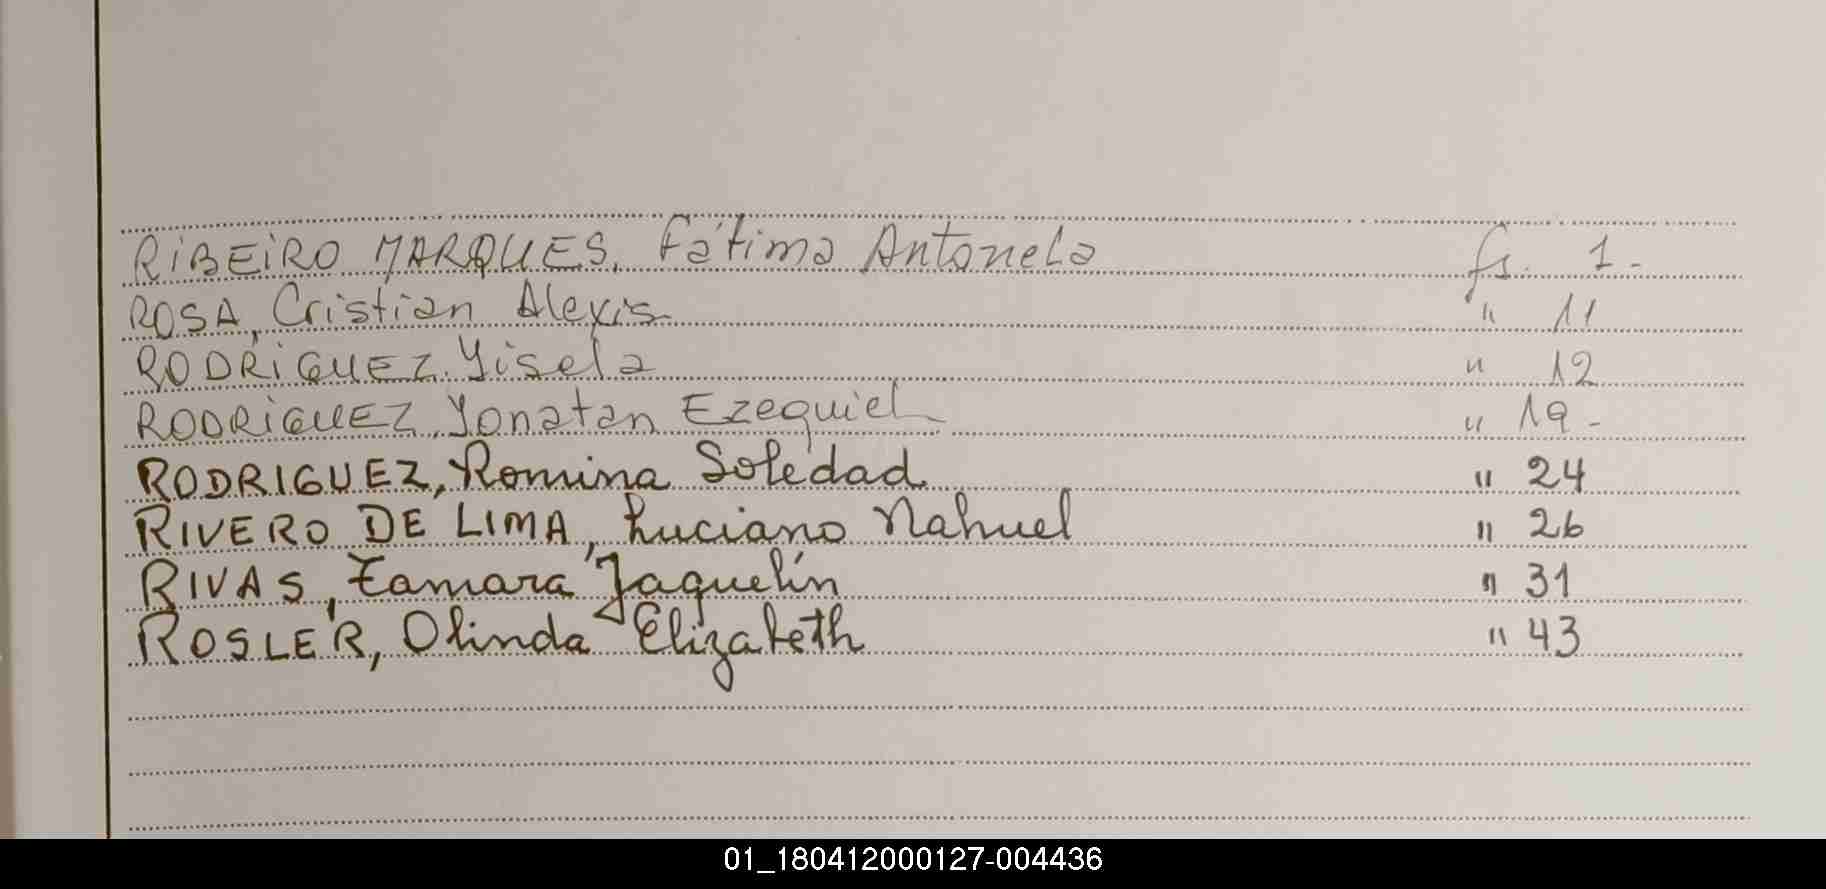 RIBEIRO MARQUES, Fátima Antonela fs. 1.-
ROSA, Cristian Alexis " 11
RODRIGUEZ, Yisela " 12
RODRIGUEZ, Yonatan Ezequiel " 19-
RODRIGUEZ, Romina Soledad " 24
RIVERO DE LIMA, Luciano Nahuel " 26
RIVAS, Tamara Jaquelín " 31
ROSLER, Olinda Elizabeth " 43
01_180412000127-004436